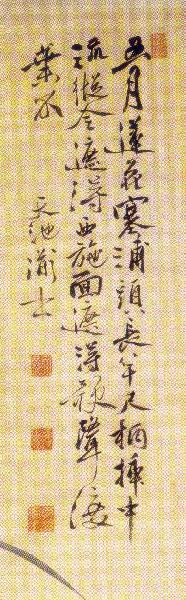 五月蓮花塞浦頭長竿尺柄插中
流縱令遮得西施面遮得歌聲渡
葉否
天池漱士